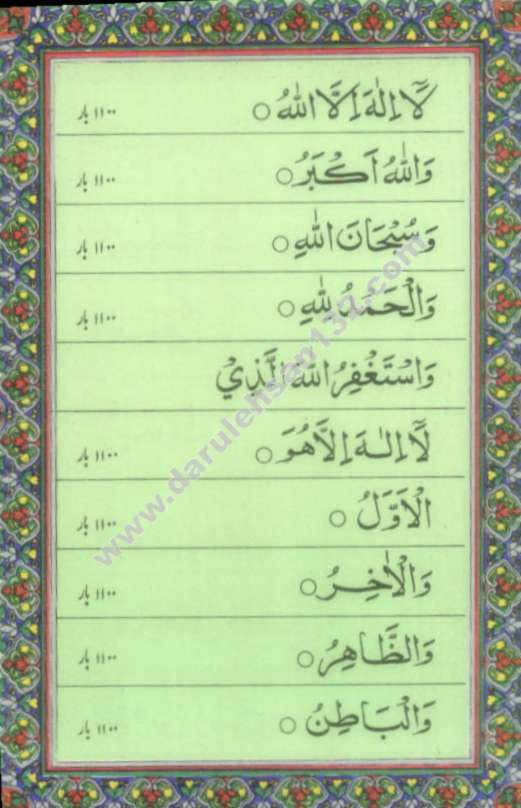 لَآ اِلٰهَ اِلَّا اللّٰهُ ○ ۱۱۰۰ بار
وَاللّٰهُ اَكْبَرُ ○ ۱۱۰۰ بار
وَسُبْحَانَ اللّٰهِ ○ ۱۱۰۰ بار
وَالْحَمْدُ لِلّٰهِ ○ ۱۱۰۰ بار
وَاسْتَغْفِرُ اللّٰهَ الَّذِيْ
لَآ اِلٰهَ اِلَّا هُوَ ○ ۱۱۰۰ بار
الْاَوَّلُ ○ ۱۱۰۰ بار
وَالْاٰخِرُ ○ ۱۱۰۰ بار
وَالظَّاهِرُ ○ ۱۱۰۰ بار
وَالْبَاطِنُ ○ ۱۱۰۰ بار
www.darulehsan137.com